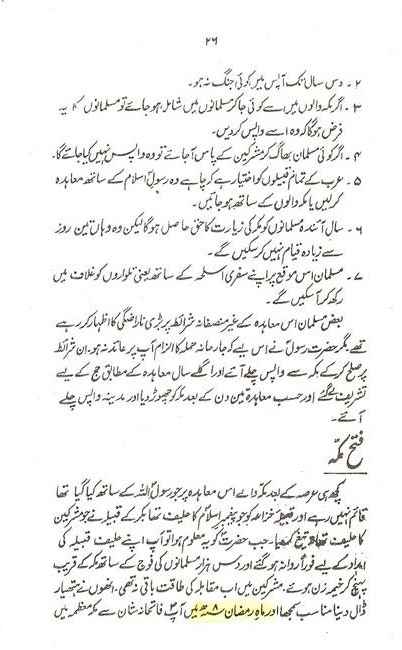 ۲۶
۲ ۔ دس سال تک آپس میں کوئی جنگ نہ ہو۔
۳ ۔ اگر مکہ والوں میں سے کوئی جاکر مسلمانوں میں شامل ہو جائے تو مسلمانوں کا یہ
فرض ہوگا کہ وہ اسے واپس کردیں۔
۴ ۔ اگر کوئی مسلمان بھاگ کر مشرکین کے پاس آجائے تو وہ واپس نہیں کیا جائے گا۔
۵ ۔ عرب کے تمام قبیلوں کو اختیار ہے کہ چاہے وہ رسولِ اسلام کے ساتھ معاہدہ
کرلیں یا مکہ والوں کے ساتھ ہو جائیں۔
۶ ۔ سال آئندہ مسلمانوں کو مکہ کی زیارت کا حق حاصل ہوگا لیکن وہ وہاں تین روز
سے زیادہ قیام نہیں کرسکیں گے۔
۷ ۔ مسلمان اس موقع پر اپنے سفری اسلحہ کے ساتھ یعنی تلواروں کو غلاف میں
رکھ کر آسکیں گے۔
بعض مسلمان اس معاہدہ کے غیر منصفانہ شرائط پر بڑی ناراضگی کا اظہار کر رہے
تھے مگر حضرت رسول نے اس لیے کہ جارحانہ حملہ کا الزام آپ پر عائد نہ ہو۔ ان شرائط
پر صلح کرکے مکہ سے واپس چلے آئے اور اگلے سال معاہدہ کے مطابق حج کے لیے
تشریف لے گئے اور حسب معاہدہ تین دن کے بعد مکہ کو چھوڑ دیا اور مدینہ واپس چلے
آئے۔
فتح مکہ
کچھ ہی عرصہ کے بعد مکہ والے اس معاہدہ پر جو رسول اللہ کے ساتھ کیا گیا تھا
قائم نہیں رہے اور قبیلۂ خزاعہ کو جو پیغمبر اسلام کا حلیف تھا بکر کے قبیلہ نے جو مشرکین
کا حلیف تھا تہ تیغ کردیا۔ جب حضرت کو یہ معلوم ہوا تو آپ اپنے حلیف قبیلہ کی
امداد کے لیے فوراً روانہ ہوگئے اور دس ہزار مسلمانوں کی فوج کے ساتھ مکہ کے قریب
پہنچ کر خیمہ زن ہوئے۔ مشرکین میں اب مقابلہ کی طاقت باقی نہ تھی۔ انھوں نے ہتھیار
ڈال دینا مناسب سمجھا اور ماہِ رمضان ۸ھ میں آپ فاتحانہ شان سے مکہ معظمہ میں